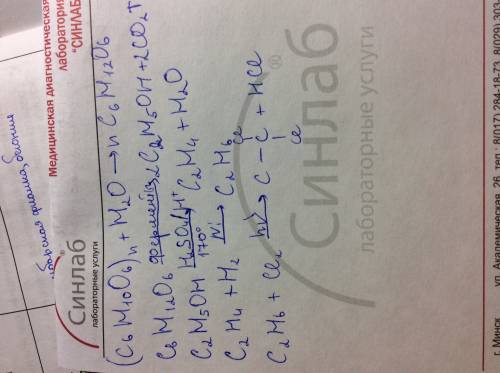 Медицинская диагностическая
лаборатория
"СИНЛАБ"
Синлаб
лабораторные услуги
(C6H10O6)n + H2O → n C6H12O6
C6H12O6 фермент→ 2C2H5OH + 2CO2↑
C2H5OH H2SO4/H+ 170° → C2H4 + H2O
C2H4 + H2 Ni→ C2H6
C2H6 + Cl2 hν→ C – C + HCl
Cl Cl
Синлаб®
лабораторные услуги
г. Минск
ул. Академическая, 26